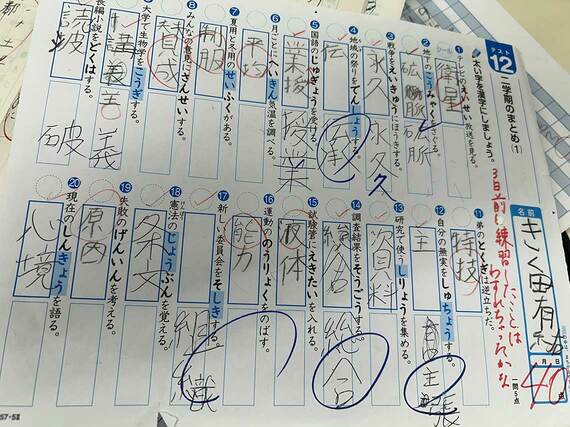 テスト
12
二学期のまとめ(1)
太い字を漢字にしましょう。
名前
きく田有
月 日
40点
一問5点
3日前し練習したことは
わすれちゃったかな
① テレビのえいせい放送を見る。
衛星
② 地下のこうみゃくをさぐる。
鉱脈
③ 戦争をえいきゅうにほうきする。
永久 永久
④ 地域の祭りをでんしょうする。
伝 伝承
⑤ 国語のじゅぎょうを受ける。
業授 授業
⑥ 月ごとにへいきん気温を調べる。
平均
⑦ 夏用と冬用のせいふくがある。
制服
⑧ みんなの意見にさんせいする。
賛成
大学で生物学をこうぎする。
講義 義
長編小説をどくはする。
読破 破
⑪ 弟のとくぎは逆立ちだ。
特技
⑫ 自分の無実をしゅちょうする。
主 主張
⑬ 研究で使うしりょうを集める。
資料
⑭ 調査結果をそうごうする。
総合 総合
⑮ 試験管にえきたいを入れる。
液体
⑯ 運動ののうりょくをのばす。
能力
⑰ 新しい委員会をそしきする。
組織
⑱ 憲法のじょうぶんを覚える。
条文
⑲ 失敗のげんいんを考える。
原因
⑳ 現在のしんきょうを語る。
心境
57-58